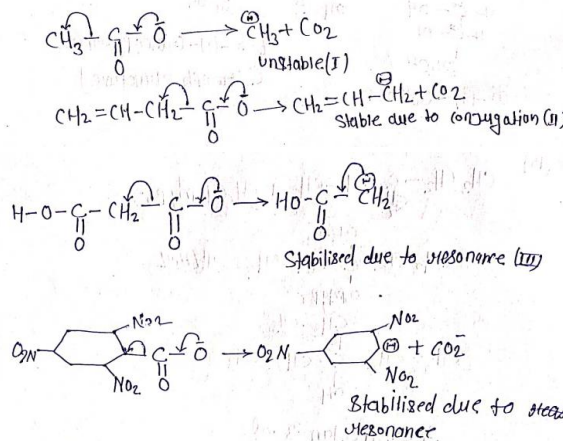 CH3 – C – Ō ⟶ ⊖CH3 + CO2
O
unstable (I)
CH2=CH-CH2 – C – Ō ⟶ CH2=CH-CH2⊖ + CO2
O
Stable due to conjugation (II)
H-O-C-CH2 – C – Ō ⟶ HO-C-CH2⊖
O O O
Stabilised due to resonance (III)
NO2 NO2
O2N C – Ō ⟶ O2N ⊖ + CO2̄
NO2 O NO2
Stabilised due to
resonance